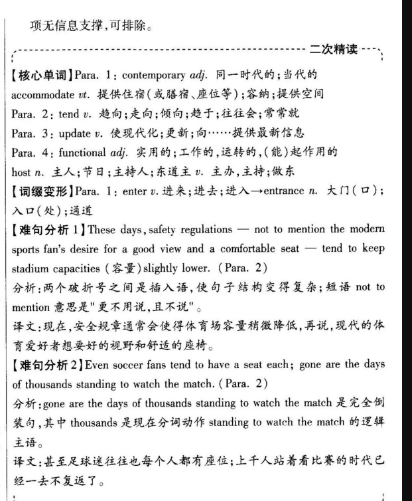 项无信息支撑,可排除。
二次精读
【核心单词】Para. 1: contemporary adj. 同一时代的;当代的
accommodate vt. 提供住宿(或膳宿、座位等);容纳;提供空间
Para. 2: tend v. 趋向;走向;倾向;趋于;往往会;常常就
Para. 3: update v. 使现代化;更新;向……提供最新信息
Para. 4: functional adj. 实用的;工作的,运转的,(能)起作用的
host n. 主人;节目;主持人;东道主 v. 主办,主持;做东
【词缀变形】Para. 1: enter v. 进来;进去;进入→entrance n. 大门(口);
入口(处);通道
【难句分析1】These days, safety regulations — not to mention the modern
sports fan's desire for a good view and a comfortable seat — tend to keep
stadium capacities (容量)slightly lower. (Para. 2)
分析:两个破折号之间是插入语,使句子结构变得复杂;短语 not to
mention 意思是"更不用说,且不说"。
译文:现在,安全规章通常会使得体育场容量稍微降低,再说,现代的体
育爱好者想要好的视野和舒适的座椅。
【难句分析2】Even soccer fans tend to have a seat each; gone are the days
of thousands standing to watch the match. (Para. 2)
分析:gone are the days of thousands standing to watch the match 是完全倒
装句,其中 thousands 是现在分词动作 standing to watch the match 的逻辑
主语。
译文:甚至足球迷往往也每个人都有座位;上千人站着看比赛的时代已
经一去不复返了。